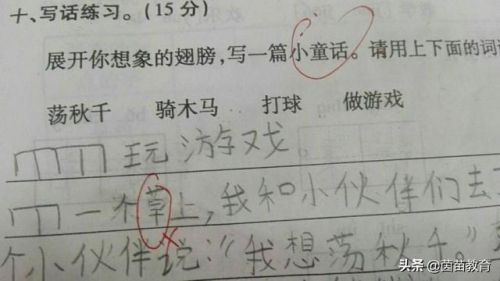 十、写话练习。(15分)
展开你想象的翅膀,写一篇小童话。请用上下面的词
荡秋千 骑木马 打球 做游戏
玩游戏。
一个草上,我和小伙伴们去
个小伙伴说:“我想荡秋千。”
头条 @茵苗教育